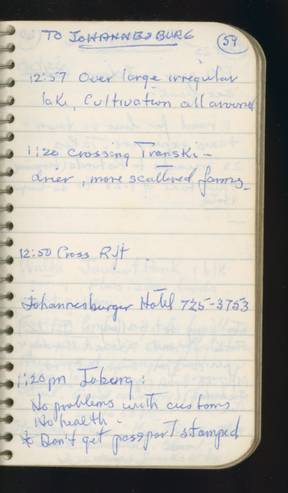 TO JOHANNESBURG
59
12:57 Over large irregular
lake, Cultivation all around
1:20 Crossing Transki-
drier, more scattered farms
12:50 Cross Rift
Johannesburger Hotel 725-3753
1:20pm Joburg:
No problems with customs
No health -
* Don't get passport stamped